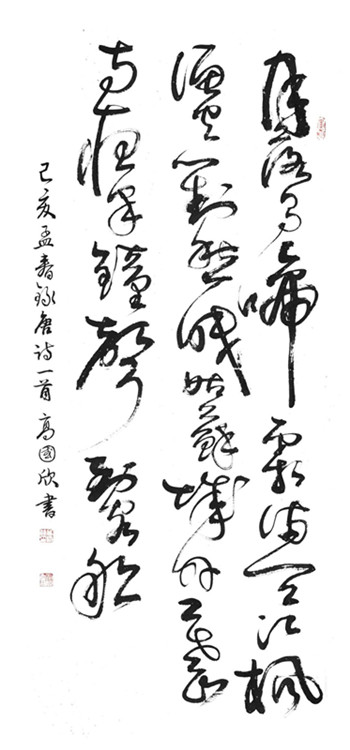 月落烏啼霜滿天江楓
漁火對愁眠姑蘇城外寒山
寺夜半鐘聲到客船
己亥孟春錄唐詩一首高國欣書